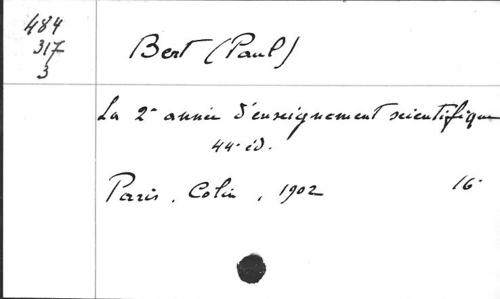 484
317
3
Bert (Paul)
La 2e année d'enseignement scientifique
44e éd.
Paris, Colin, 1902 16°